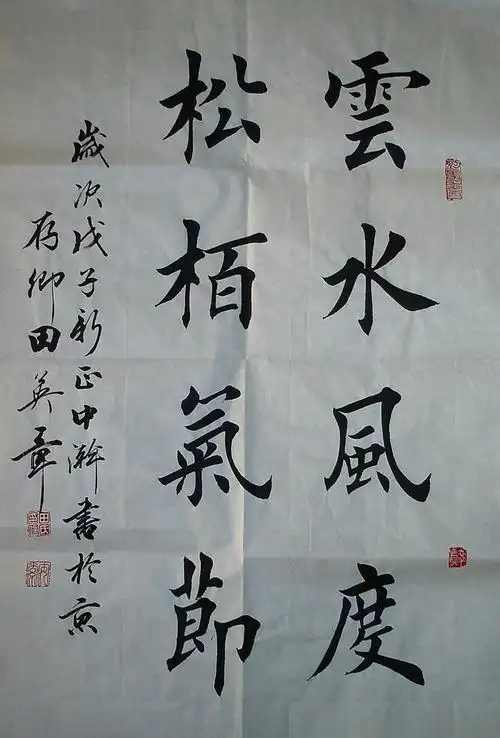 雲水風度
松栢氣莭
歲次戊子新正中澣書於京
存卿田英章